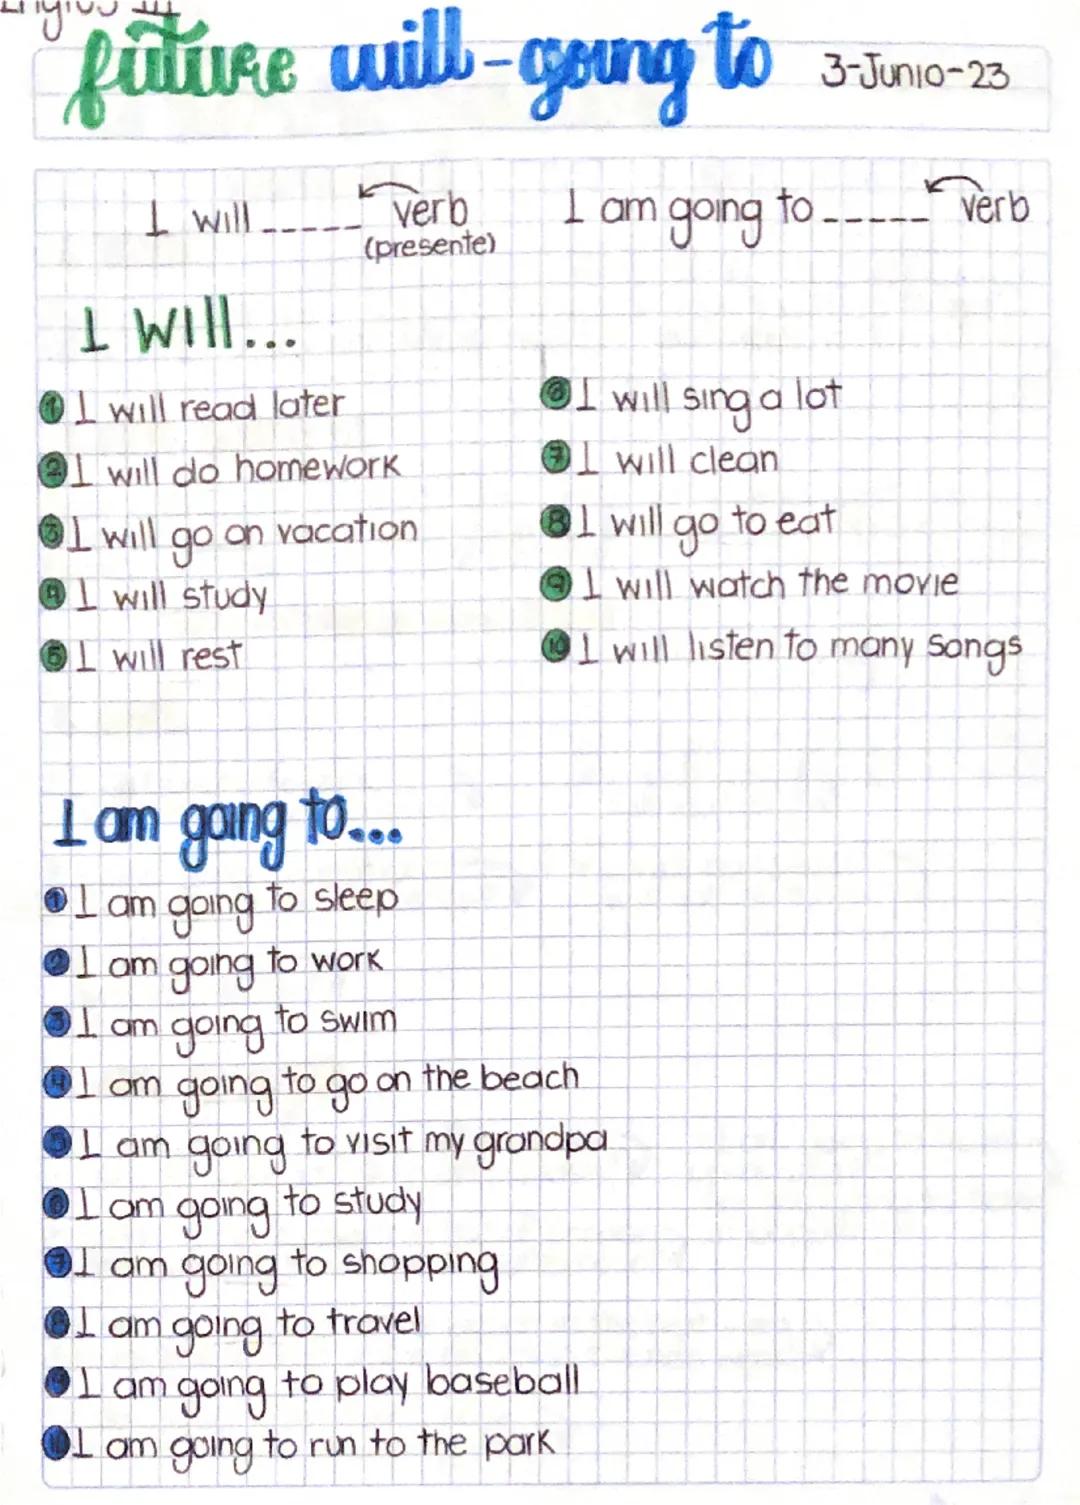 Inglés III
future will-going to 3-Junio-23
I will _____ verb (presente)
I am going to _____ verb
I will...
1 I will read later
2 I will do homework
3 I will go on vacation
4 I will study
5 I will rest
6 I will sing a lot
7 I will clean
8 I will go to eat
9 I will watch the movie
10 I will listen to many songs
I am going to...
1 I am going to sleep
2 I am going to work
3 I am going to swim
4 I am going to go on the beach
5 I am going to visit my grandpa
6 I am going to study
7 I am going to shopping
8 I am going to travel
9 I am going to play baseball
10 I am going to run to the park